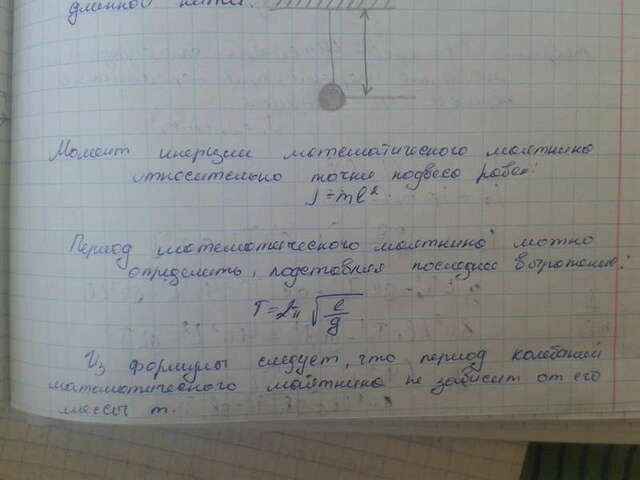 длинной нити.
Момент инерции математичесного маятника
относительно точки подвеса равен:
J=ml².
Период математического маятника можно
определить, подставив последнее вырожение:
T=2π√l/g
Из формулы следует, что период колебаний
математического маятника не зависит от его
массы m.